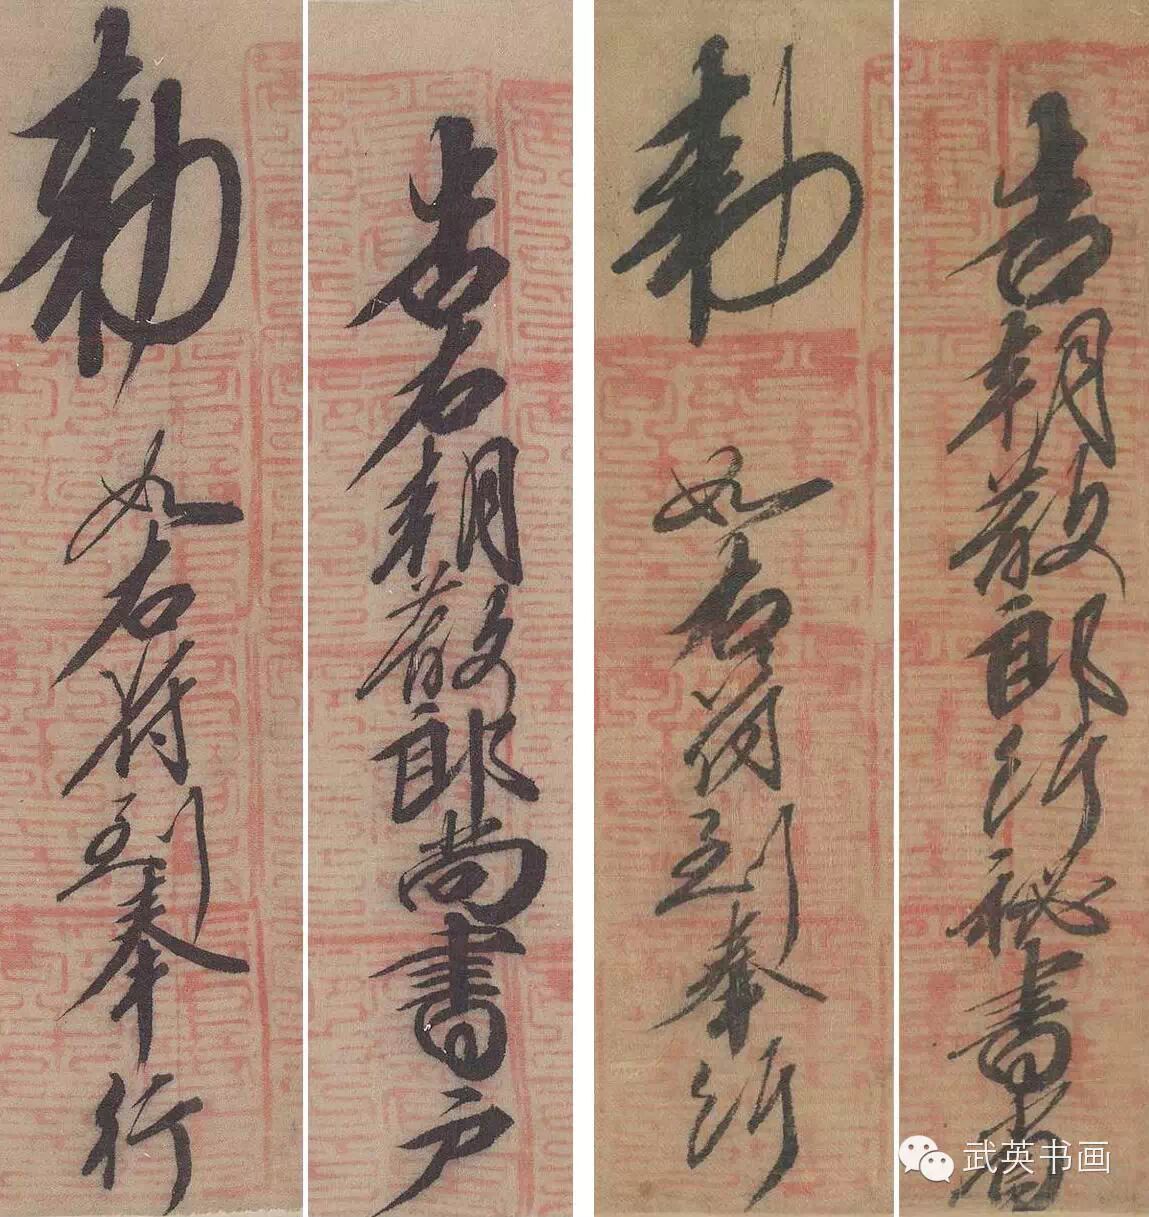 告朝散郎行秘書省
勅如右符到奉行
告右朝散郎尚書户
勅如右符到奉行
武英书画